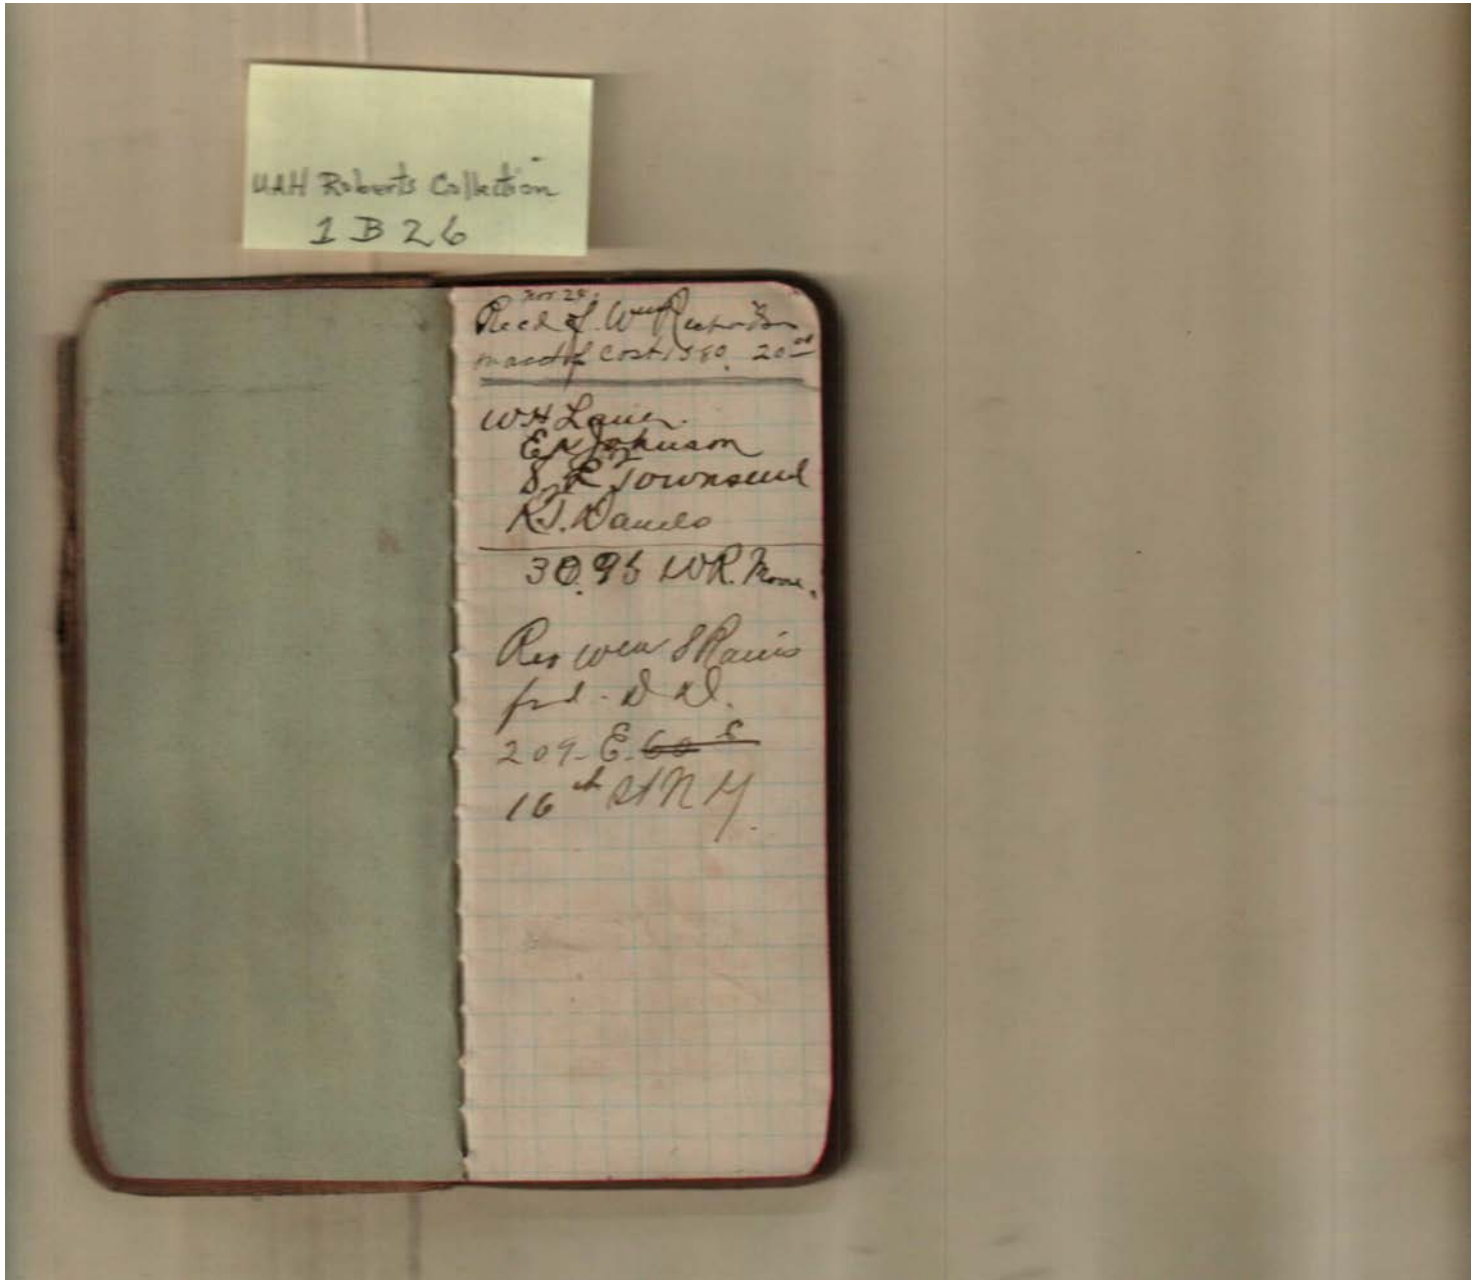 UAH Roberts Collection
1 B 26
Nov. 29.
Recd of. Wm Richardson
cost 1580. 20 00
W H Lanier.
E N Johnson
S. R Townsend
R. J. Daniels
30.95 W R. Moore.
Rev Wm S Rainsford - D D.
209 - E. 60
16 th St N Y.